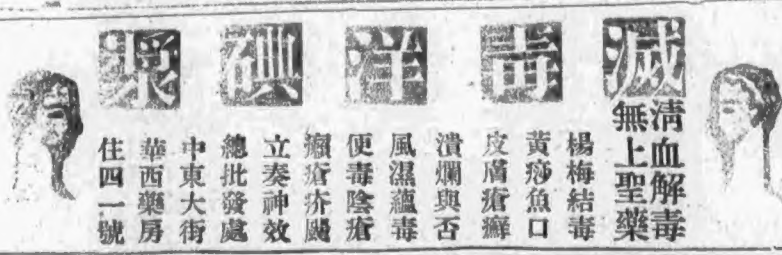 滅毒洋碘漿
清血解毒
無上聖藥
楊梅結毒
黃痧魚口
皮膚瘡癬
潰爛與否
風濕蘊毒
便毒陰瘡
癩瘡疥
立奏神效
總批發處
中東大街
華西藥房
住四一號